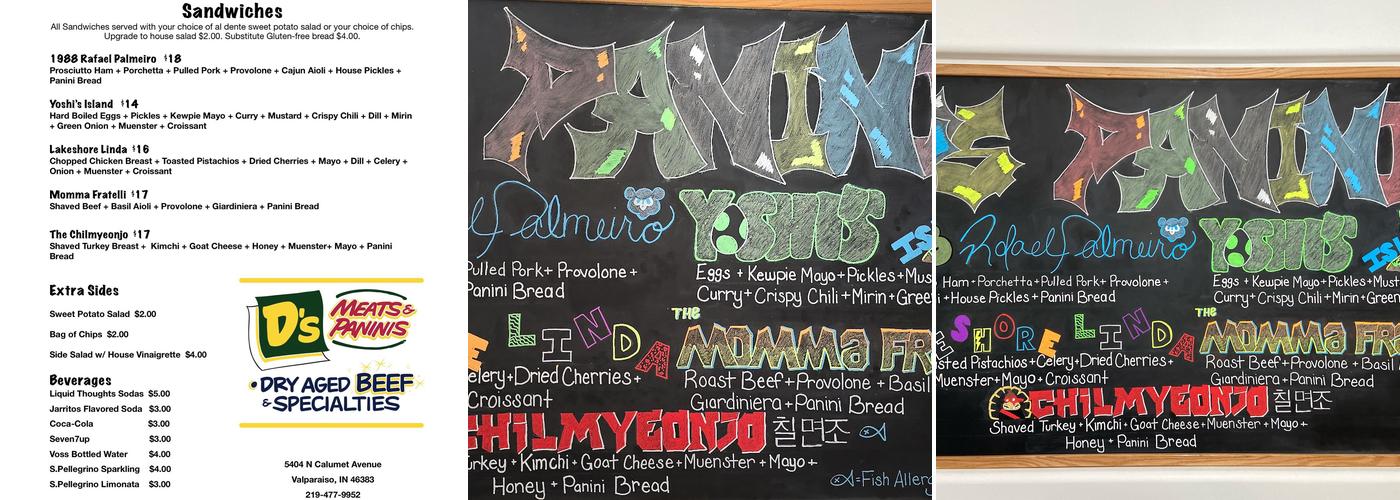 Sandwiches
All Sandwiches served with your choice of al dente sweet potato salad or your choice of chips.
Upgrade to house salad $2.00. Substitute Gluten-free bread $4.00.
1988 Rafael Palmeiro $18
Prosciutto Ham + Porchetta + Pulled Pork + Provolone + Cajun Aioli + House Pickles +
Panini Bread
Yoshi's Island $14
Hard Boiled Eggs + Pickles + Kewpie Mayo + Curry + Mustard + Crispy Chili + Dill + Mirin
+ Green Onion + Muenster + Croissant
Lakeshore Linda $16
Chopped Chicken Breast + Toasted Pistachios + Dried Cherries + Mayo + Dill + Celery +
Onion + Muenster + Croissant
Momma Fratelli $17
Shaved Beef + Basil Aioli + Provolone + Giardiniera + Panini Bread
The Chilmyeonjo $17
Shaved Turkey Breast + Kimchi + Goat Cheese + Honey + Muenster+ Mayo + Panini
Bread
Extra Sides
Sweet Potato Salad $2.00
Bag of Chips $2.00
Side Salad w/ House Vinaigrette $4.00
Beverages
Liquid Thoughts Sodas $5.00
Jarritos Flavored Soda $3.00
Coca-Cola $3.00
Seven7up $3.00
Voss Bottled Water $4.00
S.Pellegrino Sparkling $4.00
S.Pellegrino Limonata $3.00
D's MEATS &
PANINIS
• DRY AGED BEEF
& SPECIALTIES
5404 N Calumet Avenue
Valparaiso, IN 46383
219-477-9952
PANIN
l Palmeiro YOSHI'S IS
Pulled Pork + Provolone +
Panini Bread
Eggs + Kewpie Mayo + Pickles + Mus
Curry + Crispy Chili + Mirin + Gree
E LINDA
THE MOMMA FR
elery + Dried Cherries +
Croissant
Roast Beef + Provolone + Basil
Giardiniera + Panini Bread
CHILMYEONJO 칠면조
urkey + Kimchi + Goat Cheese + Muenster + Mayo +
Honey + Panini Bread
=Fish Allerg
E PANIN
Rafael Palmeiro YOSHI'S IS
Ham + Porchetta + Pulled Pork + Provolone +
i + House Pickles + Panini Bread
Eggs + Kewpie Mayo + Pickles + Must
Curry + Crispy Chili + Mirin + Green
ESHORE LINDA
THE MOMMA FRA
sted Pistachios + Celery + Dried Cherries +
Muenster + Mayo + Croissant
Roast Beef + Provolone + Basil
Giardiniera + Panini Bread
CHILMYEONJO 칠면조
Shaved Turkey + Kimchi + Goat Cheese + Muenster + Mayo +
Honey + Panini Bread